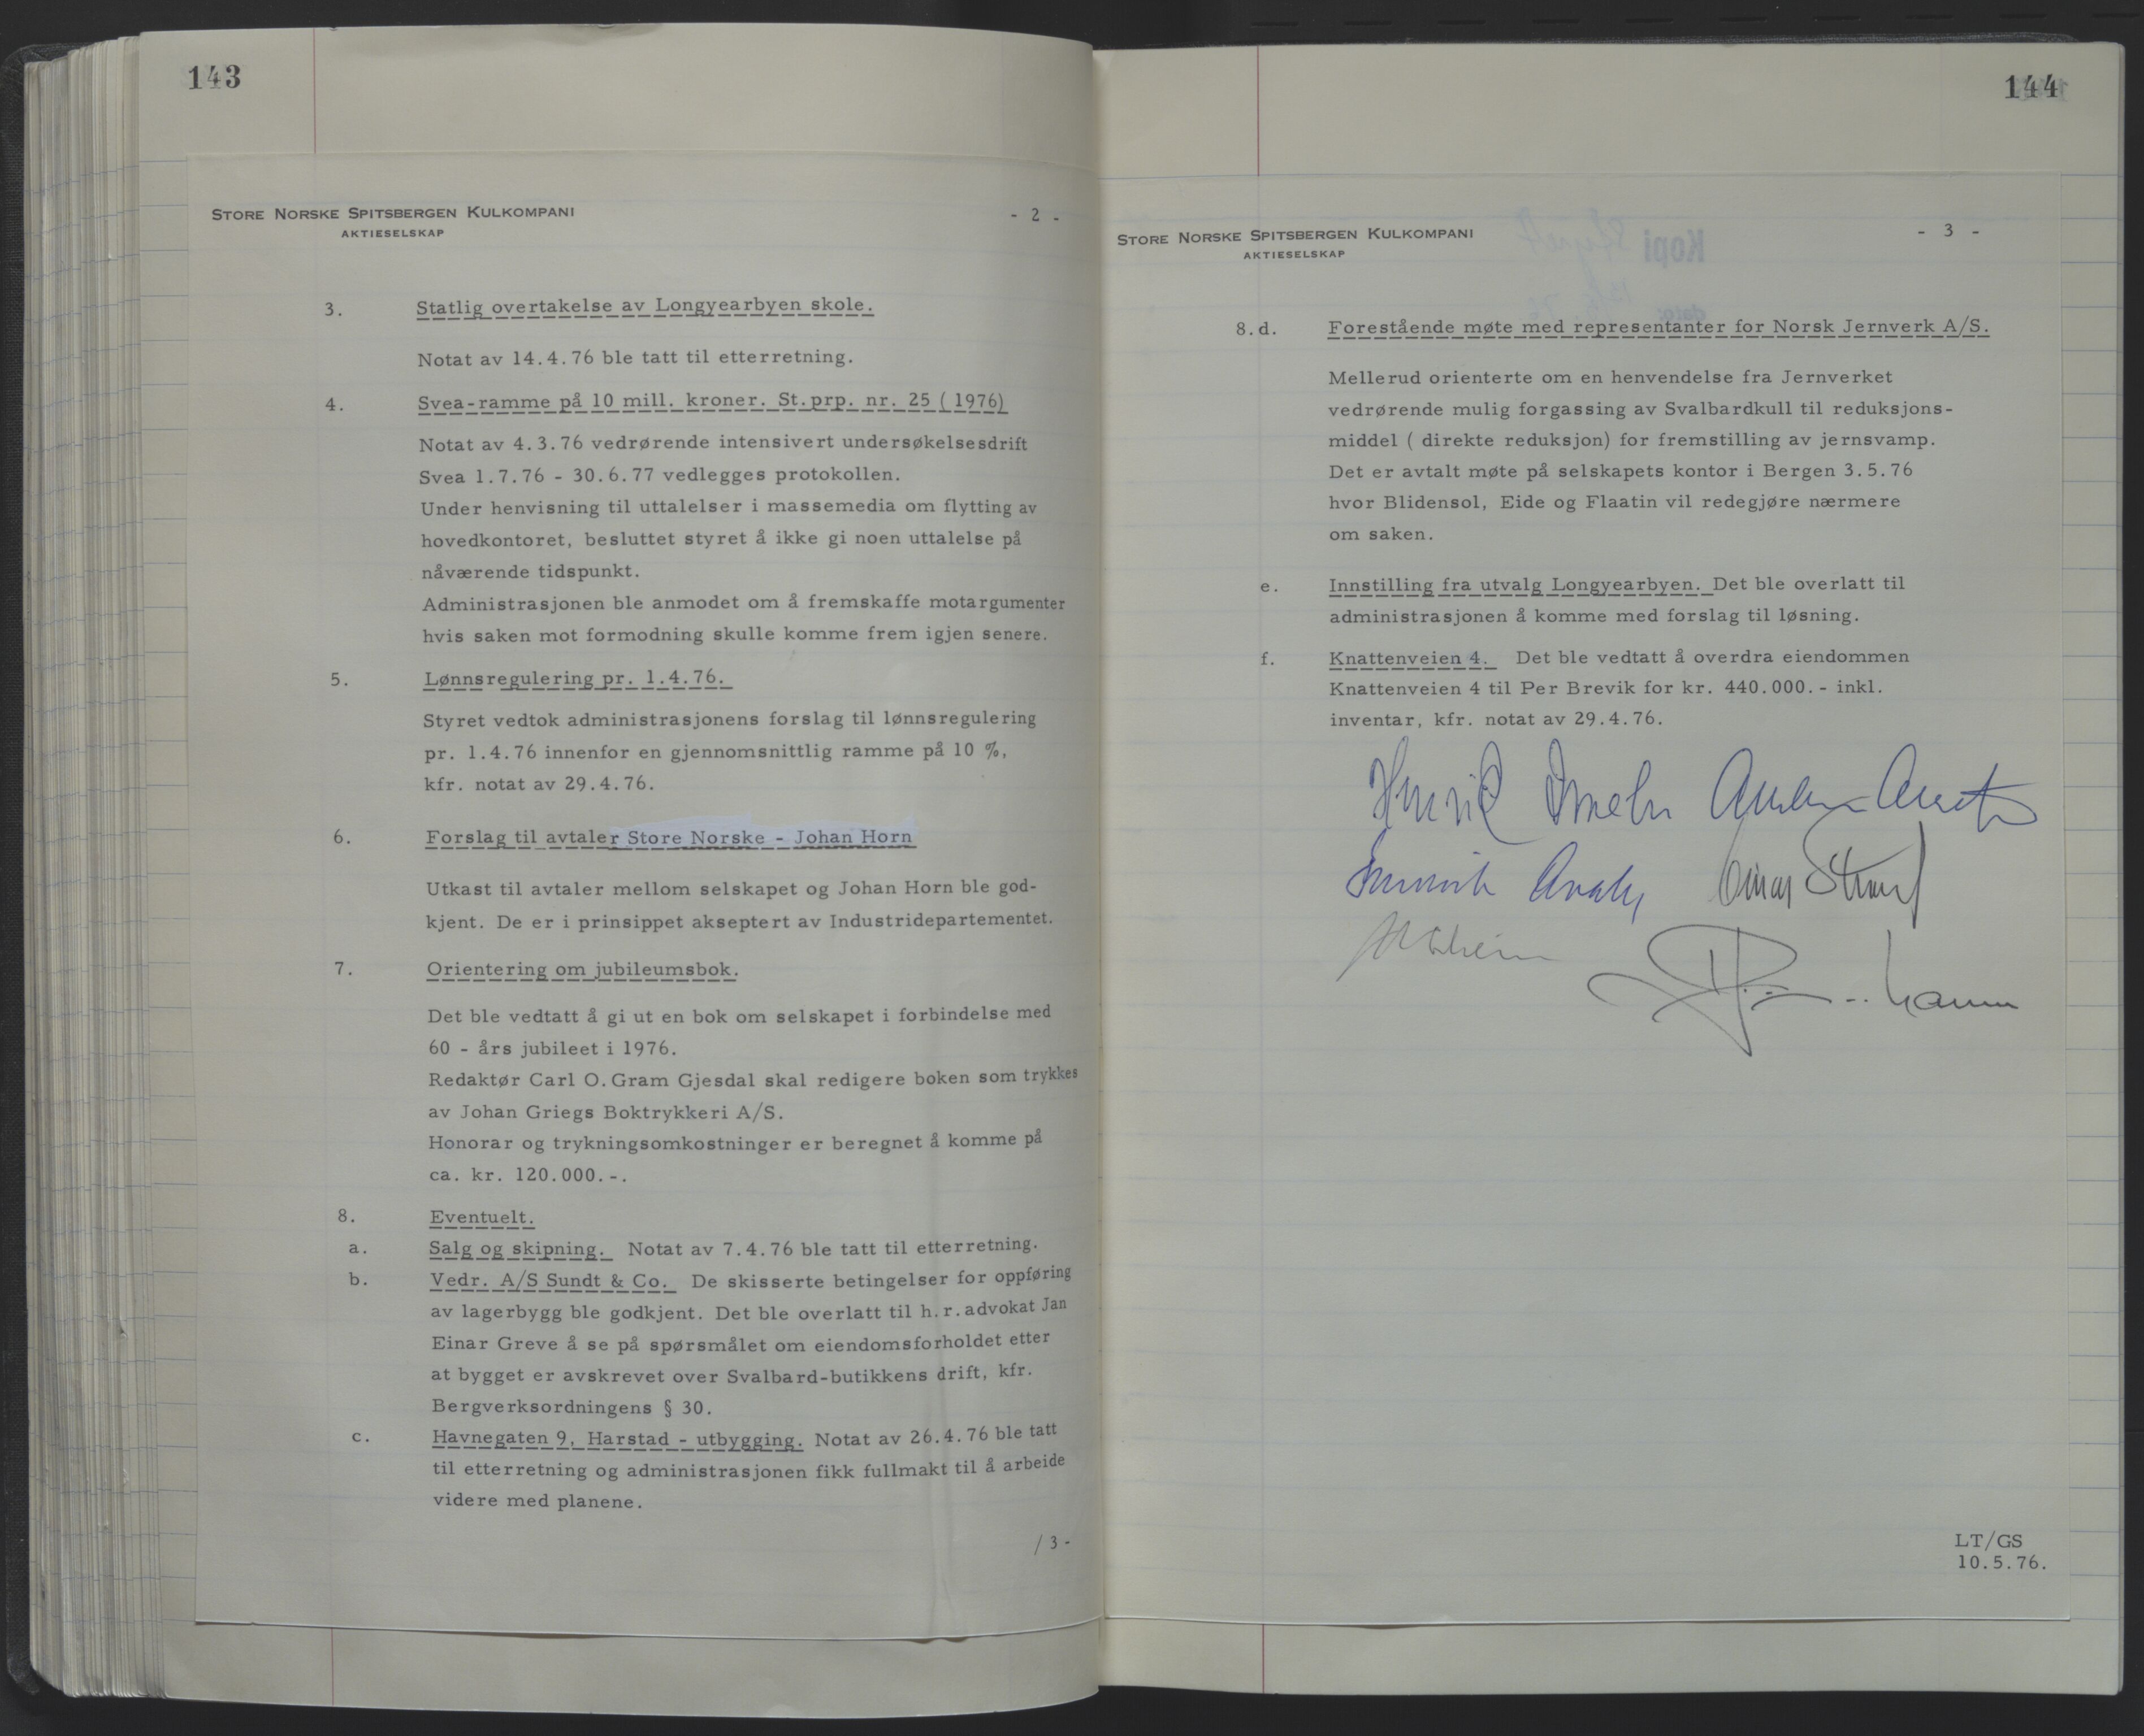 143
STORE NORSKE SPITSBERGEN KULKOMPANI
AKTIESELSKAP
- 2 -
3. Statlig overtakelse av Longyearbyen skole.
Notat av 14.4.76 ble tatt til etterretning.
4. Svea-ramme på 10 mill. kroner. St.prp. nr. 25 (1976)
Notat av 4.3.76 vedrørende intensivert undersøkelsesdrift
Svea 1.7.76 - 30.6.77 vedlegges protokollen.
Under henvisning til uttalelser i massemedia om flytting av
hovedkontoret, besluttet styret å ikke gi noen uttalelse på
nåværende tidspunkt.
Administrasjonen ble anmodet om å fremskaffe motargumenter
hvis saken mot formodning skulle komme frem igjen senere.
5. Lønnsregulering pr. 1.4.76.
Styret vedtok administrasjonens forslag til lønnsregulering
pr. 1.4.76 innenfor en gjennomsnittlig ramme på 10 %,
kfr. notat av 29.4.76.
6. Forslag til avtaler Store Norske - Johan Horn
Utkast til avtaler mellom selskapet og Johan Horn ble god-
kjent. De er i prinsippet akseptert av Industridepartementet.
7. Orientering om jubileumsbok.
Det ble vedtatt å gi ut en bok om selskapet i forbindelse med
60 - års jubileet i 1976.
Redaktør Carl O. Gram Gjesdal skal redigere boken som trykkes
av Johan Griegs Boktrykkeri A/S.
Honorar og trykningsomkostninger er beregnet å komme på
ca. kr. 120.000.-.
8. Eventuelt.
a. Salg og skipning. Notat av 7.4.76 ble tatt til etterretning.
b. Vedr. A/S Sundt & Co. De skisserte betingelser for oppføring
av lagerbygg ble godkjent. Det ble overlatt til h.r.advokat Jan
Einar Greve å se på spørsmålet om eiendomsforholdet etter
at bygget er avskrevet over Svalbard-butikkens drift, kfr.
Bergverksordningens § 30.
c. Havnegaten 9, Harstad - utbygging. Notat av 26.4.76 ble tatt
til etterretning og administrasjonen fikk fullmakt til å arbeide
videre med planene.
/ 3 -
144
STORE NORSKE SPITSBERGEN KULKOMPANI
AKTIESELSKAP
- 3 -
Kopi
dato:
8.d. Forestående møte med representanter for Norsk Jernverk A/S.
Mellerud orienterte om en henvendelse fra Jernverket
vedrørende mulig forgassing av Svalbardkull til reduksjons-
middel ( direkte reduksjon) for fremstilling av jernsvamp.
Det er avtalt møte på selskapets kontor i Bergen 3.5.76
hvor Blidensol, Eide og Flaatin vil redegjøre nærmere
om saken.
e. Innstilling fra utvalg Longyearbyen. Det ble overlatt til
administrasjonen å komme med forslag til løsning.
f. Knattenveien 4. Det ble vedtatt å overdra eiendommen
Knattenveien 4 til Per Brevik for kr. 440.000.- inkl.
inventar, kfr. notat av 29.4.76.
Henrik
Einar
LT/GS
10.5.76.